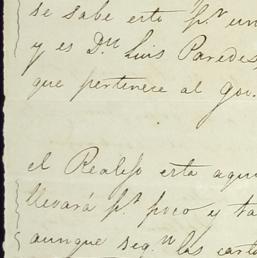 se sabe esto pr. un
y es Dn. Luis Paredes,
que pertenece al Gov.
el Realejo esta aqui
llevará pr. poco y ta
aunque seg.n las cart